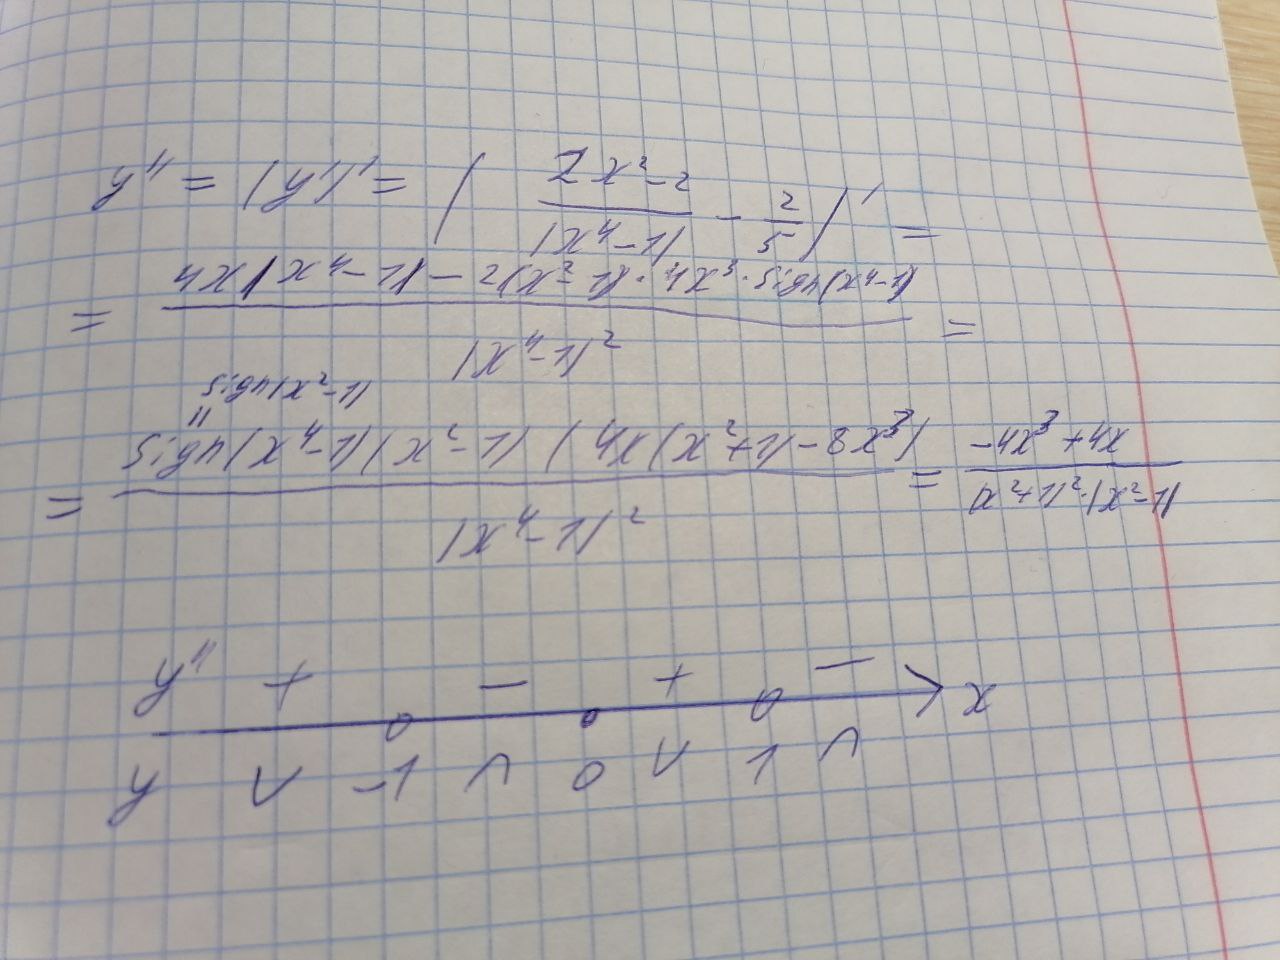 y'' = (y')' = ( (2x²-2)/|x⁴-1| - 2/5 )' =
= (4x|x⁴-1| - 2(x²-1)·4x³·sign(x⁴-1))/|x⁴-1|² =
sign(x²-1)
"
= (sign(x⁴-1)(x²-1)(4x(x²+1)-8x³))/|x⁴-1|² = (-4x³+4x)/((x²+1)²·|x²-1|)
y'' + - + - x
y ∨ -1 ∧ 0 ∨ 1 ∧